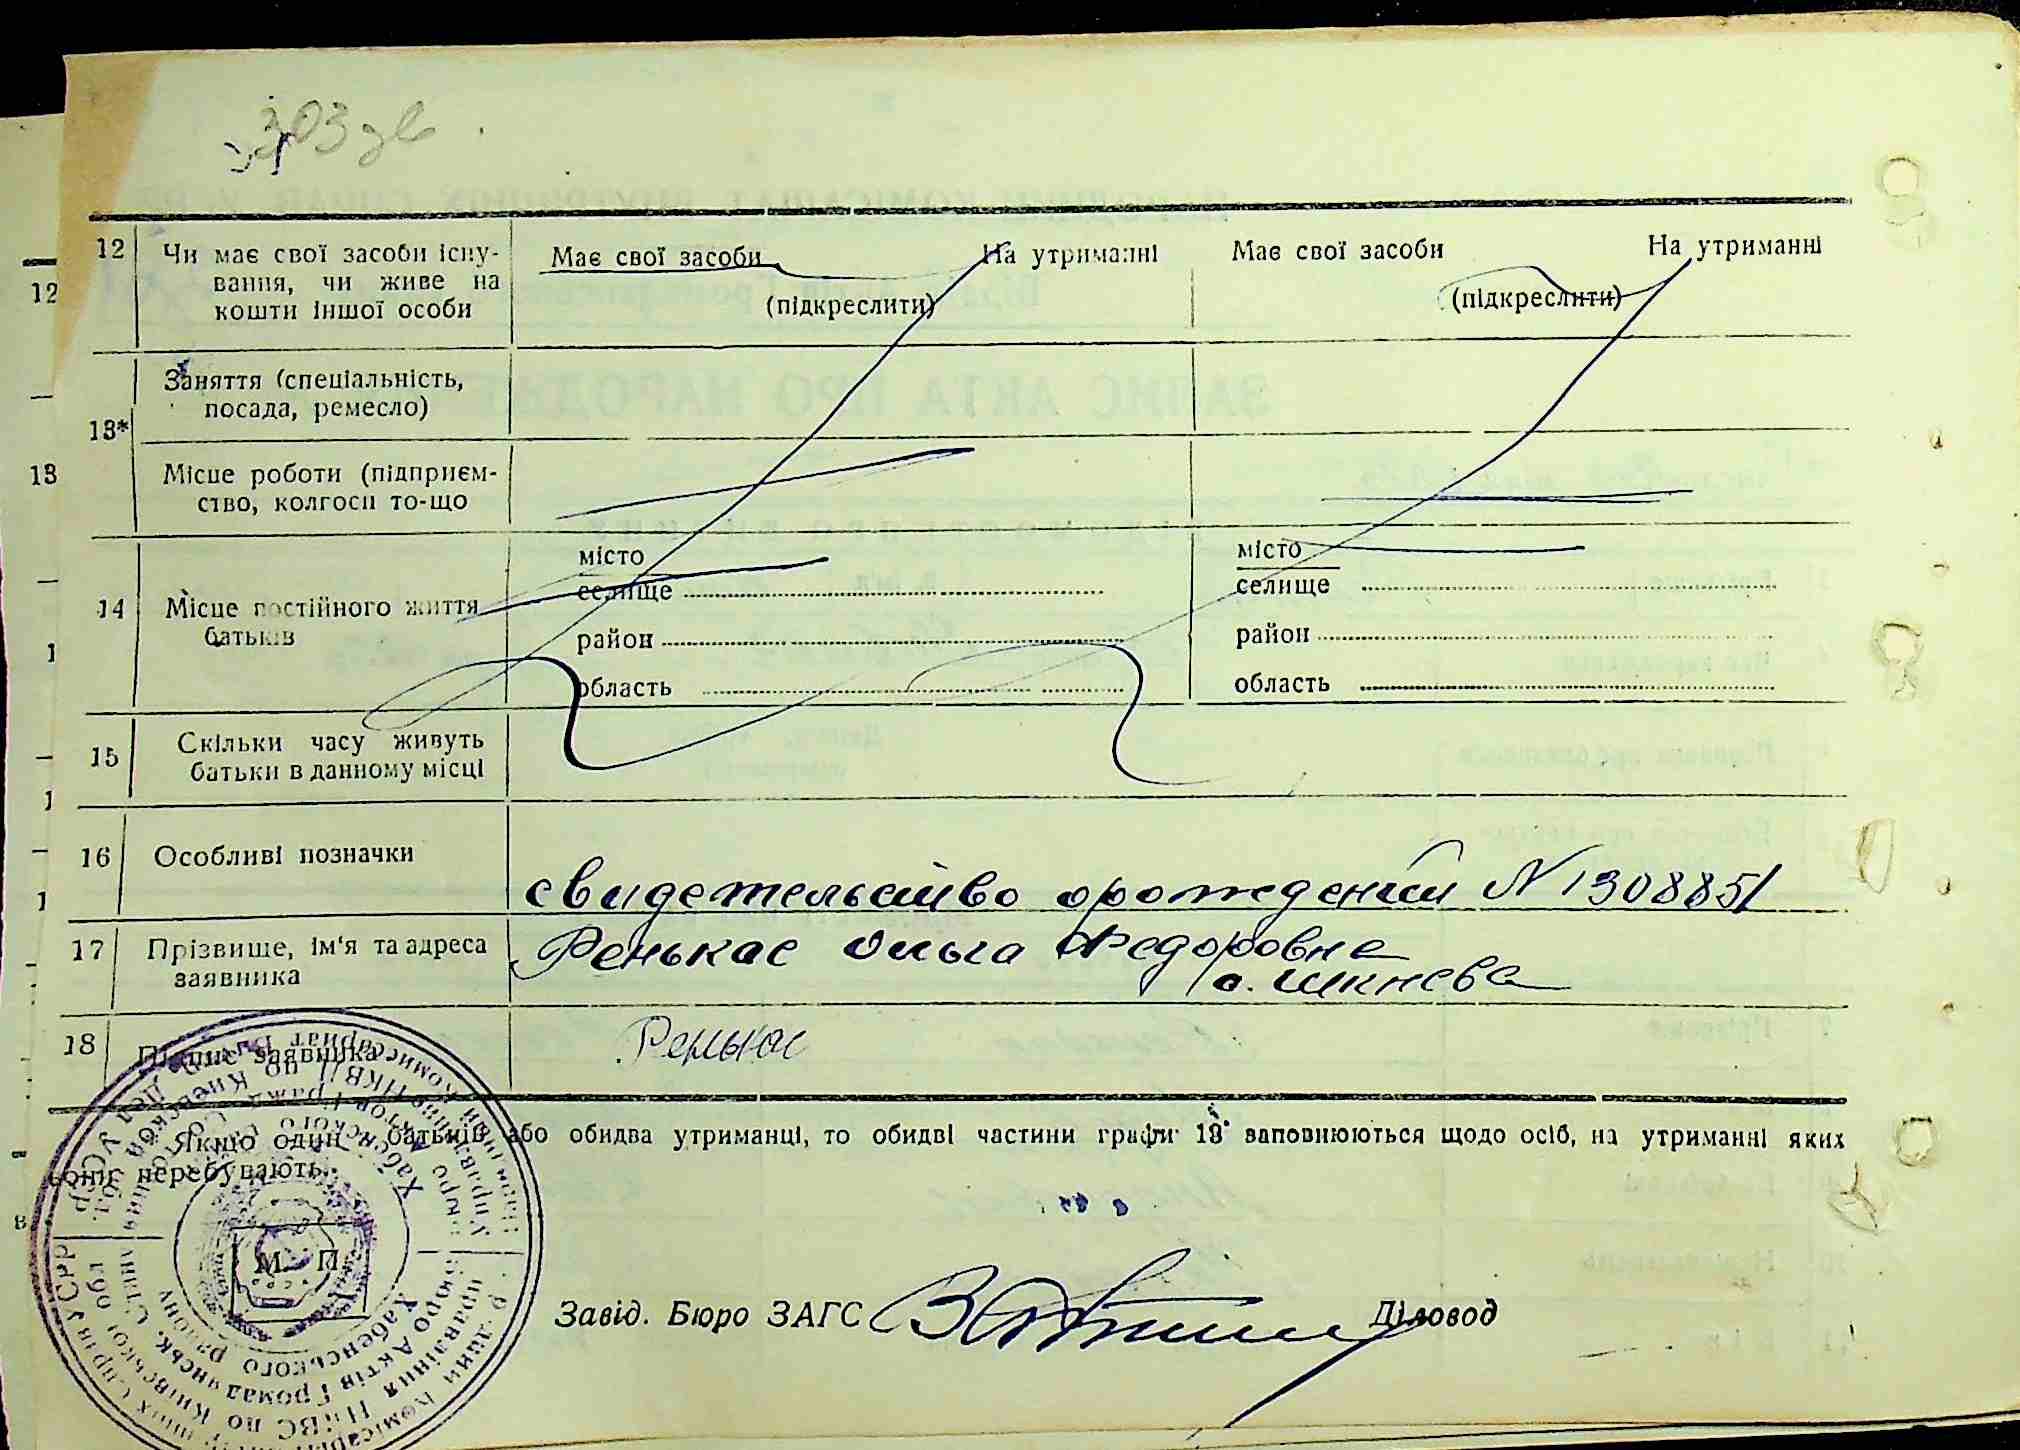 303 зв
12 Чи має свої засоби існу-
вання, чи живе на
кошти іншої особи
Має свої засоби На утриманні
(підкреслити)
Має свої засоби На утриманні
(підкреслити)
13* Заняття (спеціальність,
посада, ремесло)
Місце роботи (підприєм-
ство, колгосп то-що
14 Місце постійного життя
батьків
місто
селище
район
область
місто
селище
район
область
15 Скільки часу живуть
батьки в данному місці
16 Особливі позначки
свидетельство о рождении N 1308851
17 Прізвище, ім'я та адреса
заявника
Ренькас Ольга Федоровна
с. Шкнева
18 Підпис заявника
Ренькас
Якщо один з батьків або обидва утриманці, то обидві частини графи 13* заповнюються щодо осіб, на утриманні яких
вони перебувають.
М. П.
Завід. Бюро ЗАГС
Діловод
12
13